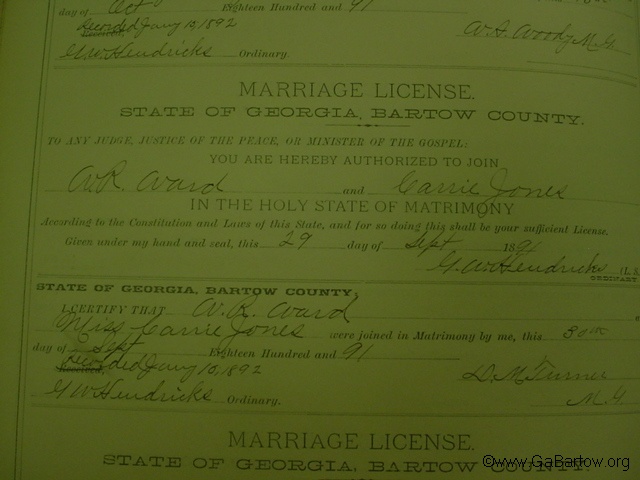 day of Oct Eighteen Hundred and 91
Recorded Jany 10, 1892
G W Hendricks Ordinary. W. A. Woody M.G.
MARRIAGE LICENSE.
STATE OF GEORGIA, BARTOW COUNTY.
TO ANY JUDGE, JUSTICE OF THE PEACE, OR MINISTER OF THE GOSPEL:
YOU ARE HEREBY AUTHORIZED TO JOIN
W.R. Ward and Carrie Jones
IN THE HOLY STATE OF MATRIMONY
According to the Constitution and Laws of this State, and for so doing this shall be your sufficient License.
Given under my hand and seal, this 29 day of Sept 1891
G. W. Hendricks (L. S.
ORDINARY
STATE OF GEORGIA, BARTOW COUNTY:
I CERTIFY THAT W. R. Ward
Miss Carrie Jones were joined in Matrimony by me, this 30th
day of Sept Eighteen Hundred and 91
Recorded Jany 10, 1892 D. M. Turner
G W Hendricks Ordinary. M. G.
MARRIAGE LICENSE.
STATE OF GEORGIA, BARTOW COUNTY.
©www.GaBartow.org